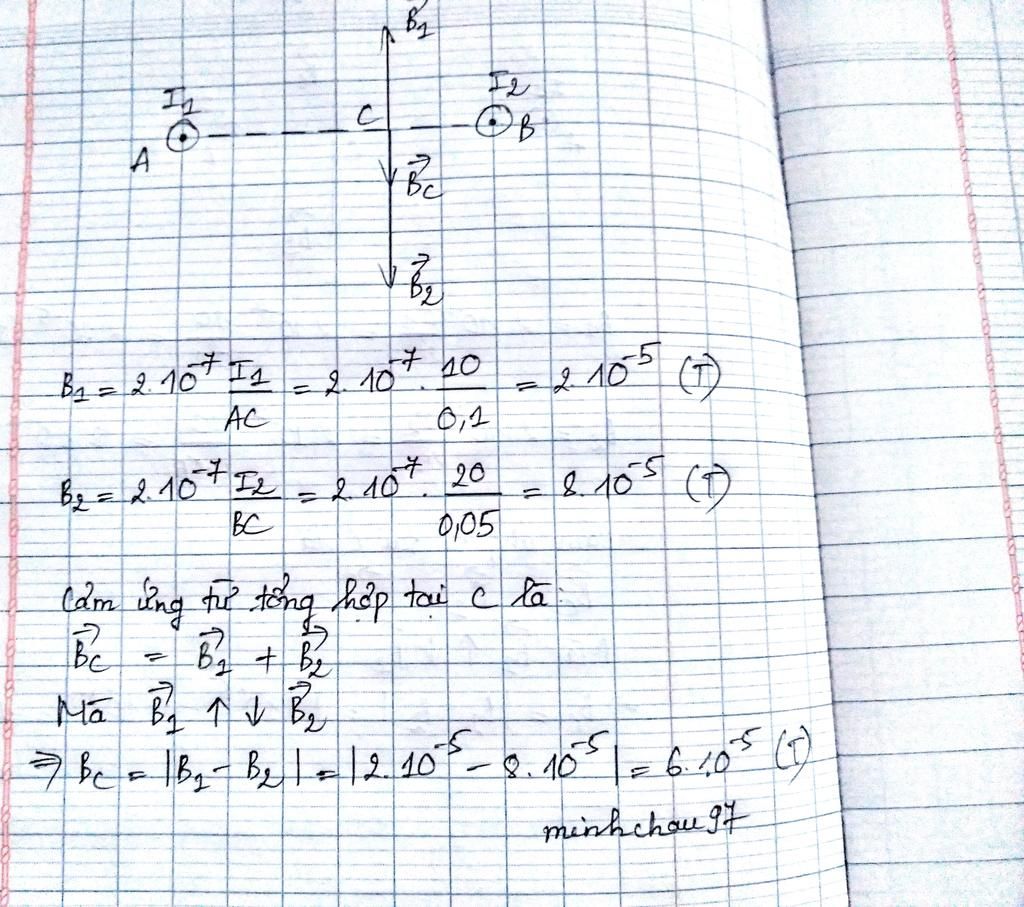 B⃗₁
I₁
I₂
C
A
B
B⃗c
B⃗₂
B₁ = 2.10⁻⁷ I₁/AC = 2.10⁻⁷ . 10/0,1 = 2.10⁻⁵ (T)
B₂ = 2.10⁻⁷ I₂/BC = 2.10⁻⁷ . 20/0,05 = 8.10⁻⁵ (T)
Cảm ứng từ tổng hợp tại C là:
B⃗c = B⃗₁ + B⃗₂
Mà B⃗₁ ↑↓ B⃗₂
⇒ Bc = |B₁ - B₂| = |2.10⁻⁵ - 8.10⁻⁵| = 6.10⁻⁵ (T)
minhchau97